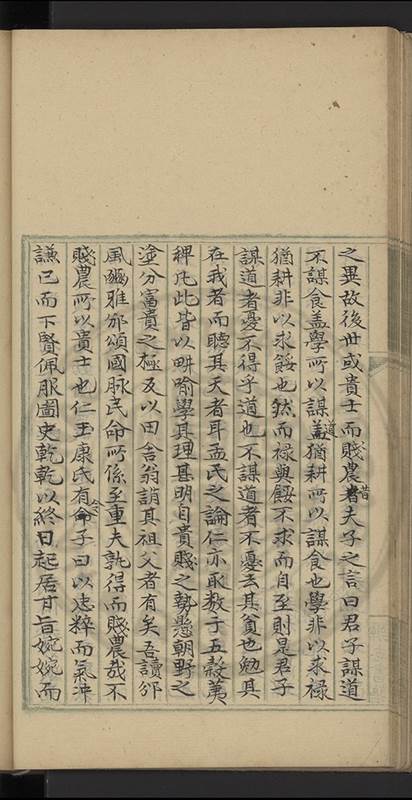 之異故後世或貴士而賤農昔夫子之言曰君子謀道
不謀食蓋學所以謀道猶耕所以謀食也學非以求祿
猶耕非以求餒也然而祿與餒不求而自至則是君子
謀道者憂不得乎道也不謀道者不憂去其貧也勉其
在我者而聽其天者耳孟氏之論仁亦取数于五穀荑
稗凡此皆以畊喻學其理甚明自貴賤之勢懸朝野之
塗分富貴之極及以田舍翁誚其祖父者有矣吾讀邠
風豳雅邠頌國脉民命所係至重夫孰得而賤農哉不
賤農所以貴士也仁玉康氏有令子曰以志粹而氣冲
謙已而下賢佩服圖史乾乾以終日起居甘旨婉婉而